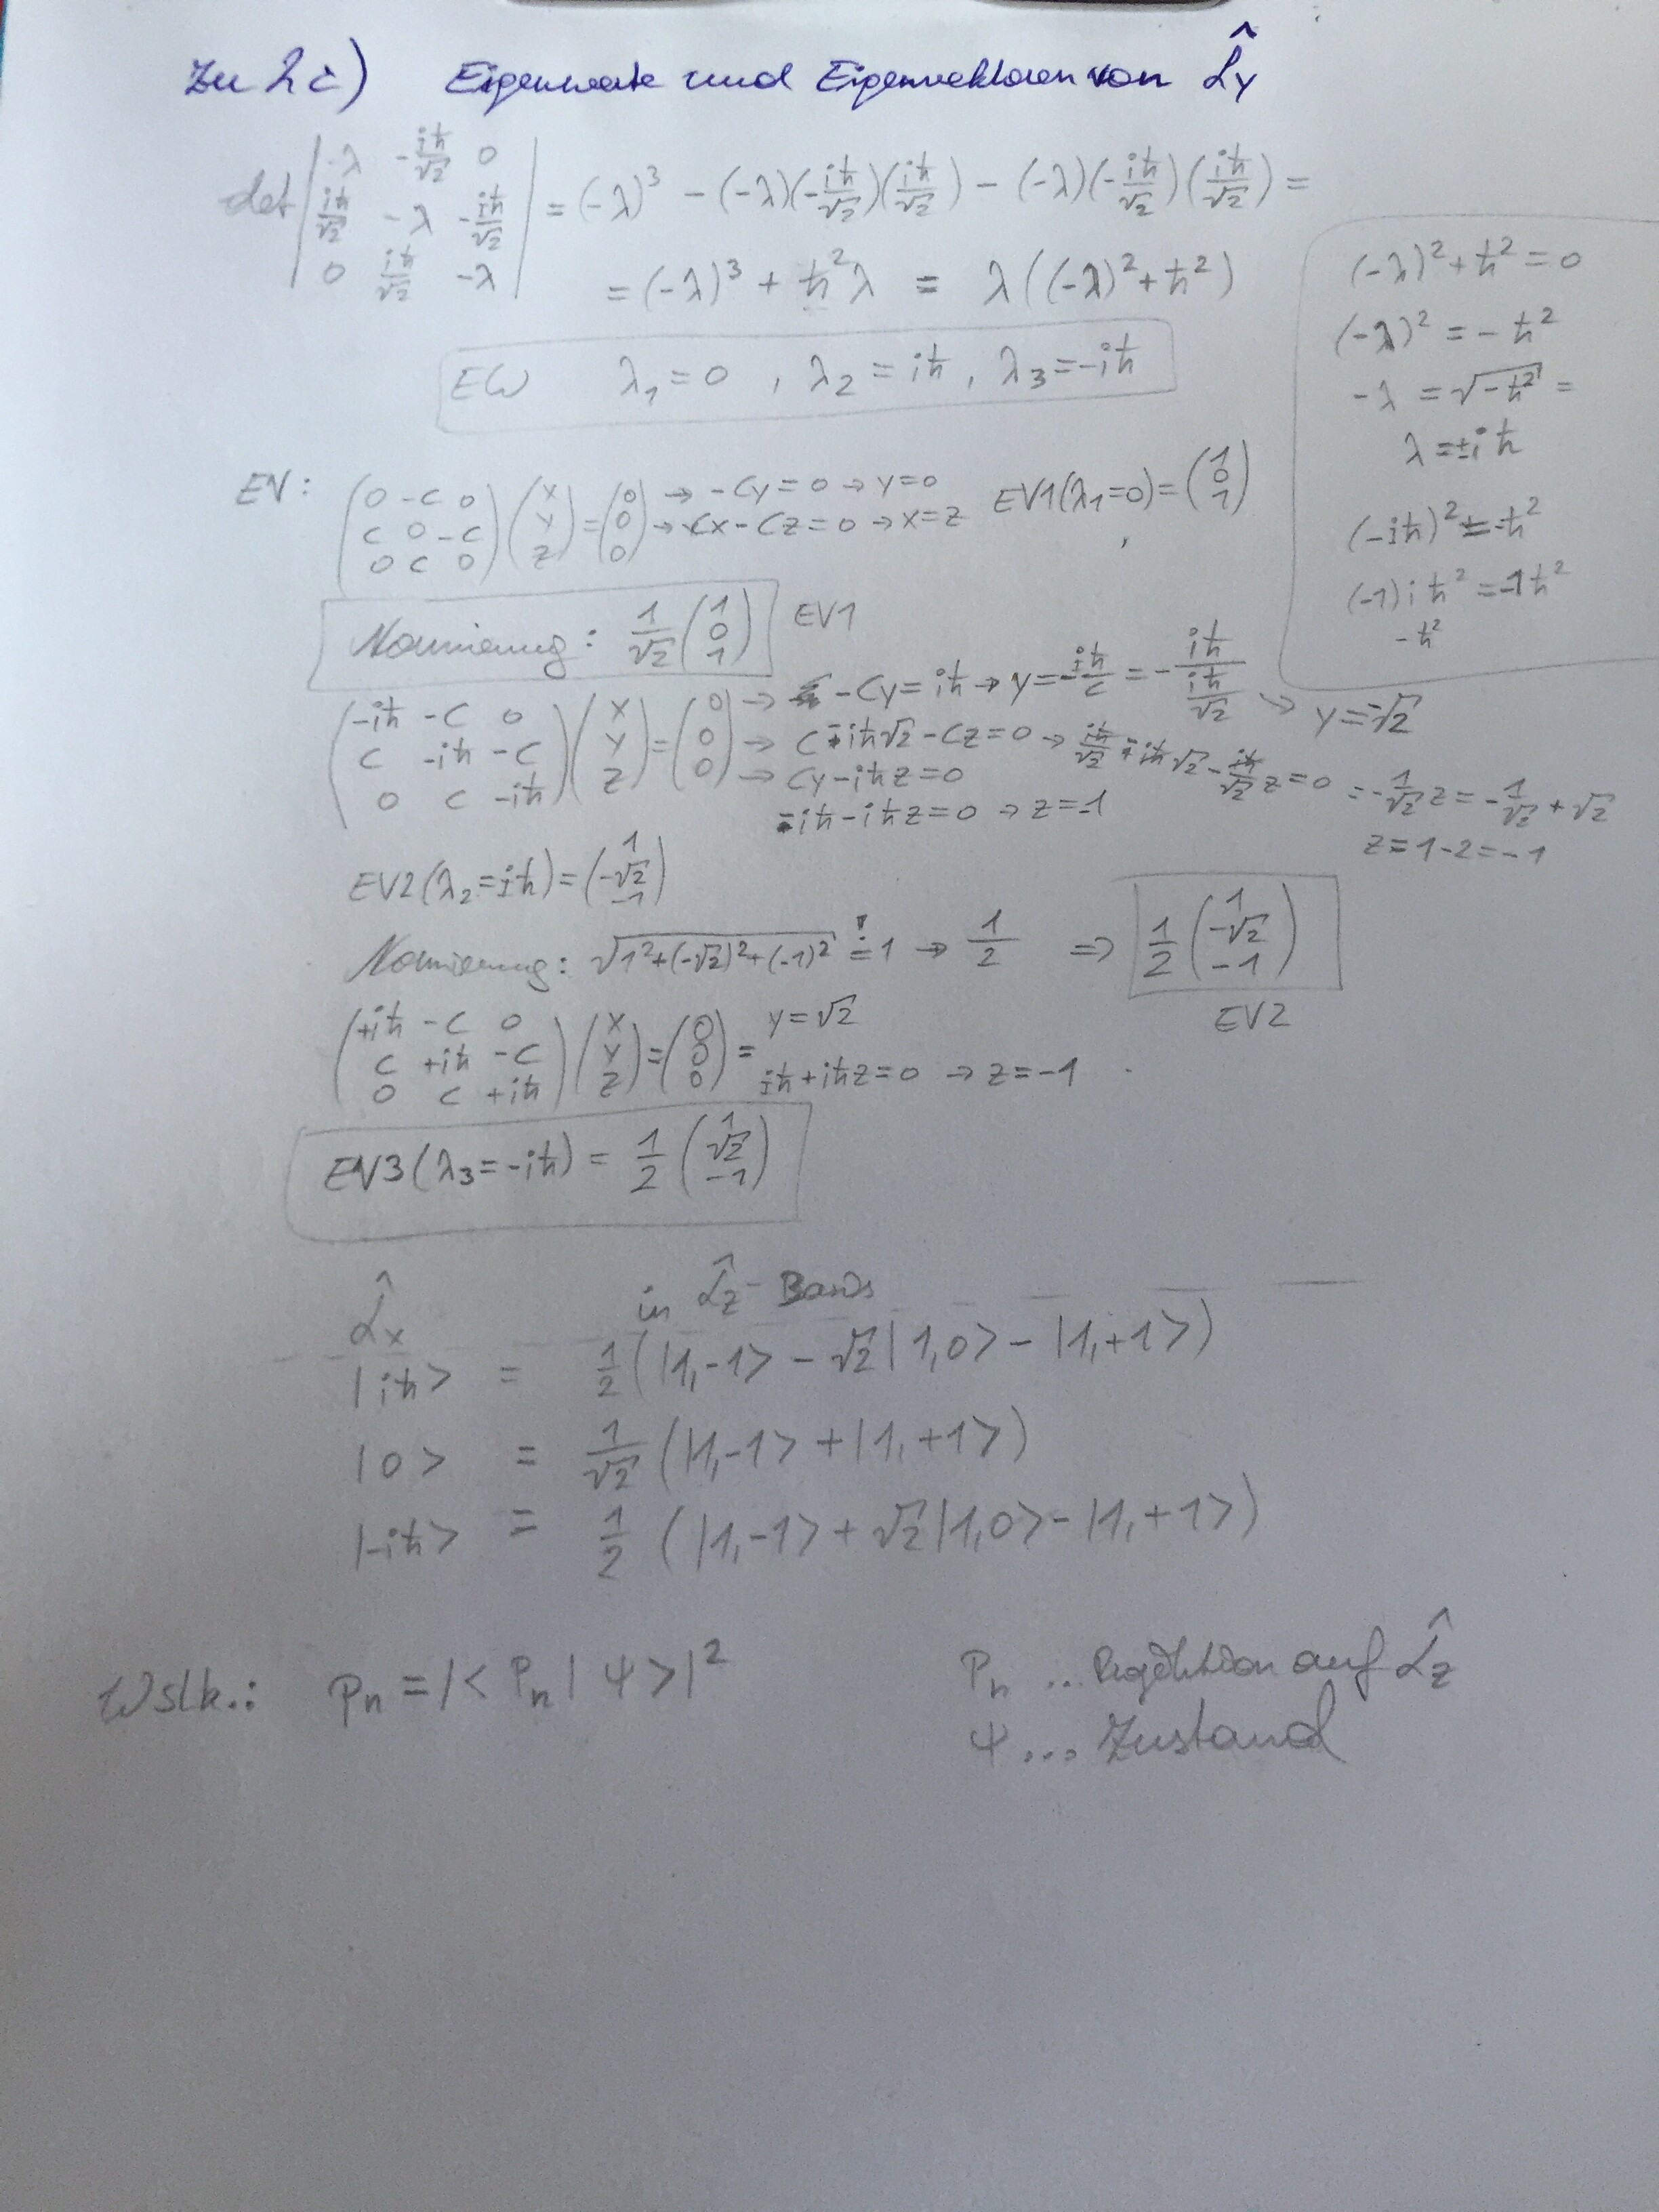 Zu 2c) Eigenwerte und Eigenvektoren von L̂y
det | -λ -iħ/√2 0 |
| iħ/√2 -λ -iħ/√2 |
| 0 iħ/√2 -λ |
= (-λ)³ - (-λ)(-iħ/√2)(iħ/√2) - (-λ)(-iħ/√2)(iħ/√2) =
= (-λ)³ + ħ²λ = λ((-λ)²+ħ²)
EW λ₁=0 , λ₂=iħ , λ₃=-iħ
(-λ)²+ħ²=0
(-λ)² = -ħ²
-λ = √-ħ² =
λ=±iħ
(-iħ)²=-ħ²
(-1)iħ²=-1ħ²
-ħ²
EV: (0 -C 0; C 0 -C; 0 C 0)(x; y; z)=(0; 0; 0) → -Cy=0 → y=0
→ Cx-Cz=0 → x=z
EV1(λ₁=0)=(1; 0; 1)
Normierung: 1/√2 (1; 0; 1) EV1
(-iħ -C 0; C -iħ -C; 0 C -iħ)(x; y; z)=(0; 0; 0) → -Cy=iħ → y=-iħ/C = -iħ/(iħ/√2) → y=-√2
→ C-iħ√2-Cz=0 → iħ/√2-iħ√2-iħ/√2 z=0 =-1/√2 z=-1/√2+√2
→ Cy-iħz=0
z=1-2=-1
-iħ-iħz=0 → z=-1
EV2(λ₂=iħ)=(1; -√2; -1)
Normierung: √1²+(-√2)²+(-1)² != 1 → 1/2 ⇒ 1/2 (1; -√2; -1)
EV2
(+iħ -C 0; C +iħ -C; 0 C +iħ)(x; y; z)=(0; 0; 0)= y=√2
iħ+iħz=0 → z=-1
EV3(λ₃=-iħ) = 1/2 (1; √2; -1)
L̂x in L̂z-Basis
|iħ> = 1/2(|1,-1> - √2|1,0> - |1,+1>)
|0> = 1/√2 (|1,-1> + |1,+1>)
|-iħ> = 1/2 (|1,-1> + √2|1,0> - |1,+1>)
Wslk.: Pn = |<Pn|ψ>|²
Pn ... Projektion auf L̂z
ψ ... Zustand